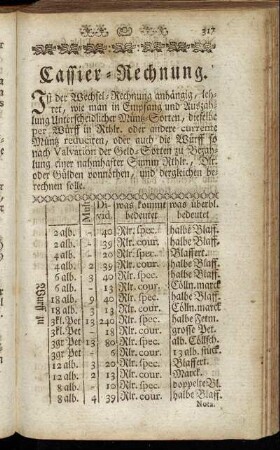 317
Cassier-Rechnung.
Ist der Wechsel-Rechnung anhängig, leh-
ret, wie man in Empfang und Auszah-
lung Unterscheidlicher Müntz-Sorten, dieselbe
per Würff in Rthlr. oder andere currente
Müntz reduciren, oder auch die Würff so
nach Valvation der Geld-Sorten zu Bezah-
lung einer nahmhafter Summ Rthlr.
oder Gülden vonnöthen, und dergleichen be-
rechnen solle.
Mult. Di- was kommt was überbl.
vid. bedeutet bedeutet
Wurff zu
2 alb. - 40 Rlr. spec. halbe Blaff.
2 alb. - 39 Rlr. cour. halbe Blaff.
4 alb. - 20 Rlr. spec. Blaffert.
4 alb. 2 39 Rlr. cour. halbe Blaff.
6 alb. 3 40 Rlr. spec. halbe Blaff.
6 alb. - 13 Rlr. cour. Cölln. marck
18 alb. 9 40 Rlr. spec. halbe Blaff.
18 alb. 3 13 Rlr. cour. Cölln. marck
3kl. Pet 13 240 Rlr. spec. halbe Fetm.
3kl. Pet - 18 Rlr. cour. grosse Pet.
3gr Pet 13 80 Rlr. spec. alb. Cöllsch.
3gr Pet - 6 Rlr. cour. 13 alb. stück.
12 alb. 3 20 Rlr. spec. Blaffert.
12 alb. 2 13 Rlr. cour. Marck.
8 alb. - 10 Rlr. spec. doppelte Bl.
8 alb. 4 39 Rlr. cour. halbe Blaff.
Nota.